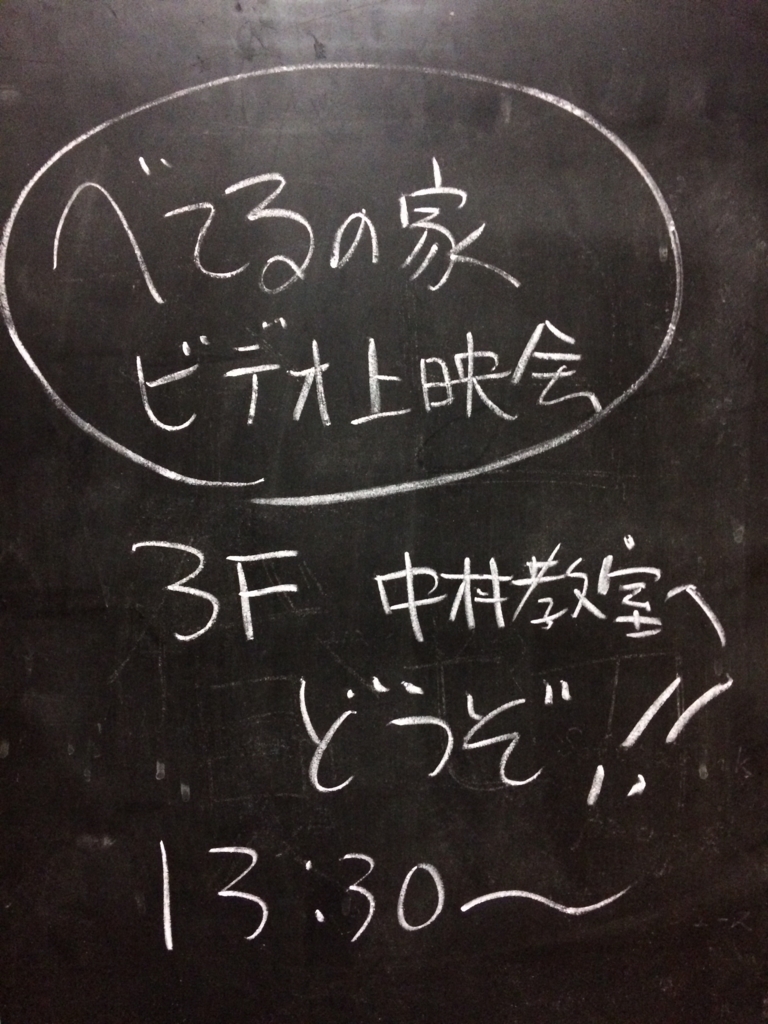 べてるの家
ビデオ上映会
3F 中村教室へ
どうぞ!!
13:30〜